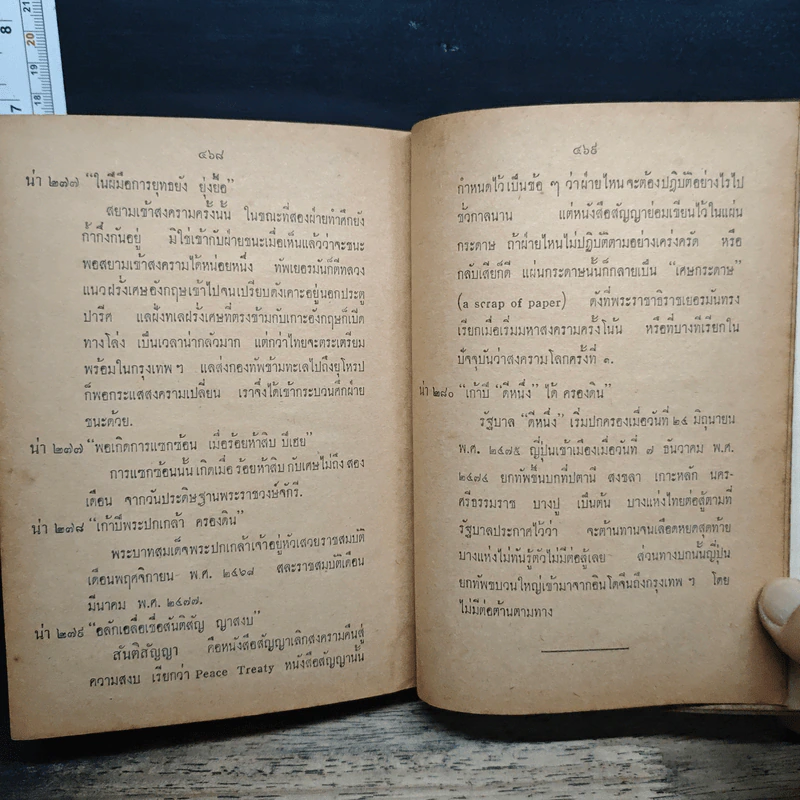 8
21
20
19
7
18
๔๖๘
น่า ๒๗๗ "ในฝีมือการยุทธยัง ยุ่งยื้อ"
สยามเข้าสงครามครั้งนั้น ในขณะที่สองฝ่ายทำศึกยัง
ก้ำกึ่งกันอยู่ มิใช่เข้ากับฝ่ายชนะเมื่อเห็นแล้วว่าจะชนะ
พอสยามเข้าสงครามได้หน่อยหนึ่ง ทัพเยอรมันก็ตีทลวง
แนวฝรั่งเศษอังกฤษเข้าไปจนเปรียบดังเคาะอยู่นอกประตู
ปารีศ แลฝั่งทเลฝรั่งเศษที่ตรงข้ามกับเกาะอังกฤษก็เปิด
ทางโล่ง เป็นเวลาน่ากลัวมาก แต่กว่าไทยจะตระเตรียม
พร้อมในกรุงเทพ ฯ แลส่งกองทัพข้ามทะเลไปถึงยุโหรป
ก็พอกระแสสงครามเปลี่ยน เราจึ่งได้เข้ากระบวนศึกฝ่าย
ชนะด้วย.
น่า ๒๗๗ "พอเกิดการแซกซ้อน เมื่อร้อยห้าสิบ ปีเฮย"
การแซกซ้อนนั้น เกิดเมื่อ ร้อยห้าสิบ กับเศษไม่ถึง สอง
เดือน จากวันประดิษฐานพระราชวงษ์จักรี.
น่า ๒๗๘ "เก้าปีพระปกเกล้า ครองดิน"
พระบาทสมเด็จพระปกเกล้าเจ้าอยู่หัวเสวยราชสมบัติ
เดือนพฤศจิกายน พ.ศ. ๒๔๖๘ สละราชสมบัติเดือน
มีนาคม พ.ศ. ๒๔๗๗.
น่า ๒๗๙ "อลักเอลื่อเชื่อสันติสัญ ญาสงบ"
สันติสัญญา คือหนังสือสัญญาเลิกสงครามคืนสู่
ความสงบ เรียกว่า Peace Treaty หนังสือสัญญานั้น
๔๖๙
กำหนดไว้ เป็นข้อ ๆ ว่าฝ่ายไหนจะต้องปฏิบัติอย่างไรไป
ชั่วกาลนาน แต่หนังสือสัญญาย่อมเขียนไว้ในแผ่น
กระดาษ ถ้าฝ่ายไหนไม่ปฏิบัติตามอย่างเคร่งครัด หรือ
กลับเสียก็ดี แผ่นกระดาษนั้นก็กลายเป็น "เศษกระดาษ"
(a scrap of paper) ดังที่พระราชาธิราชเยอรมันทรง
เรียกเมื่อเริ่มมหาสงครามครั้งโน้น หรือที่บางทีเรียกใน
ปัจจุบันว่าสงครามโลกครั้งที่ ๑.
น่า ๒๘๐ "เก้าปี "ดีหนึ่ง" ได้ ครองดิน"
รัฐบาล "ดีหนึ่ง" เริ่มปกครองเมื่อวันที่ ๒๔ มิถุนายน
พ.ศ. ๒๔๗๕ ญี่ปุ่นเข้าเมืองเมื่อวันที่ ๗ ธันวาคม พ.ศ.
๒๔๗๔ ยกทัพขึ้นบกที่ปตานี สงขลา เกาะหลัก นคร-
ศรีธรรมราช บางปู เป็นต้น บางแห่งไทยต่อสู้ตามที่
รัฐบาลประกาศไว้ว่า จะต้านทานจนเลือดหยดสุดท้าย
บางแห่งไม่ทันรู้ตัวไม่มีต่อสู้เลย ส่วนทางบกนั้นญี่ปุ่น
ยกทัพขบวนใหญ่เข้ามาจากอินโดจีนถึงกรุงเทพ ฯ โดย
ไม่มีต่อต้านตามทาง